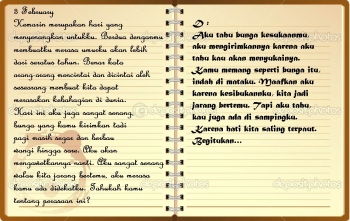 3 February
Kemarin merupakan hari yang
menyenangkan untukku. Berdua denganmu
membuatku merasa umurku akan lebih
dari seratus tahun. Benar kata
orang-orang mencintai dan dicintai oleh
seseorang membuat kita dapat
merasakan kebahagian di dunia.
Hari ini aku juga sangat senang,
bunga yang kamu kirimkan tadi
pagi masih segar dan berbau
wangi hingga sore. Aku akan
mengawetkannya nanti. Aku sangat senang
walau kita jarang bertemu, aku merasa
kamu ada didekatku. Tahukah kamu
tentang perasaan ini?
D :
Aku tahu bunga kesukaanmu,
aku mengirimkannya karena aku
tahu kau akan menyukainya.
Kamu memang seperti bunga itu,
indah di mataku. Maafkan aku
karena kesibukanku, kita jadi
jarang bertemu. Tapi aku tahu,
kau juga ada di sampingku.
Karena hati kita saling terpaut.
Begitukan...